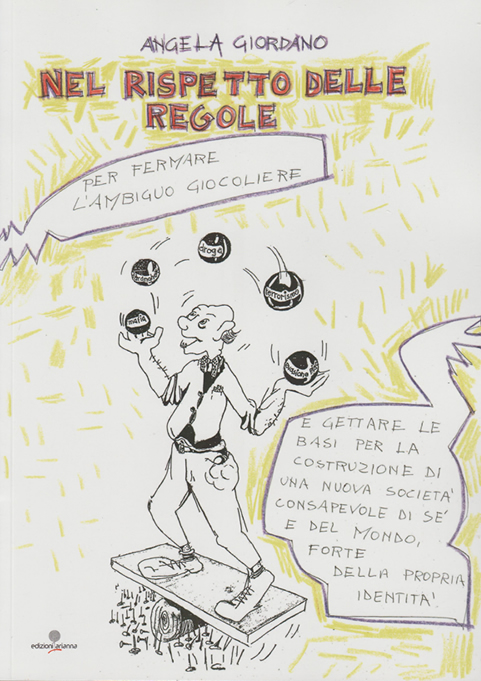 ANGELA GIORDANO
NEL RISPETTO DELLE
REGOLE
PER FERMARE
L'AMBIGUO GIOCOLIERE
droga
terrorismo
mafia
E GETTARE LE
BASI PER LA
COSTRUZIONE DI
UNA NUOVA SOCIETA'
CONSAPEVOLE DI SE'
E DEL MONDO,
FORTE
DELLA PROPRIA
IDENTITA'.
edizioni arianna